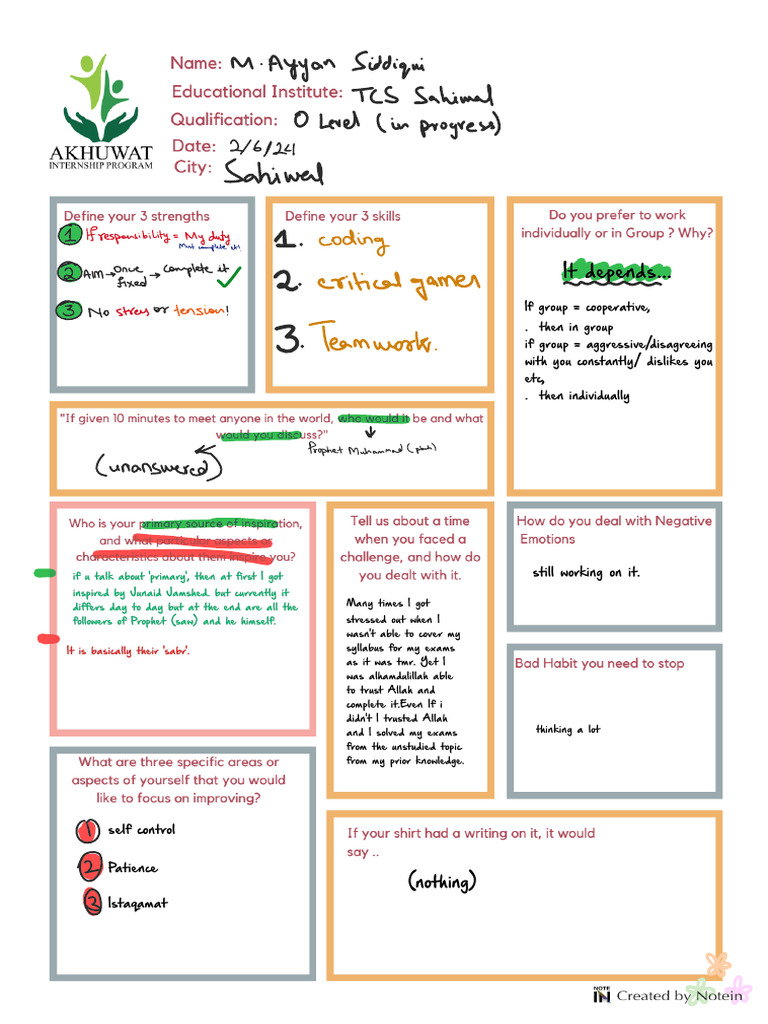 AKHUWAT
INTERNSHIP PROGRAM
Name: M. Ayyan Siddiqui
Educational Institute: TCS Sahiwal
Qualification: O Level (in progress)
Date: 2/6/24
City: Sahiwal
Define your 3 strengths
1 If responsibility = My duty
Must complete it!
2 AIM → Once fixed → complete it ✓
3 No stress or tension!
Define your 3 skills
1. coding
2. critical games
3. Teamwork.
Do you prefer to work
individually or in Group ? Why?
It depends...
If group = cooperative,
. then in group
if group = aggressive/disagreeing
with you constantly/ dislikes you
etc,
. then individually
"If given 10 minutes to meet anyone in the world, who would it be and what
would you discuss?"
Prophet Muhammad (pbuh)
(unanswered)
Who is your primary source of inspiration,
and what particular aspects or
characteristics about them inspire you?
if u talk about 'primary', then at first I got
inspired by Junaid Jamshed. but currently it
differs day to day but at the end are all the
followers of Prophet (saw) and he himself.
It is basically their 'sabr'.
Tell us about a time
when you faced a
challenge, and how do
you dealt with it.
Many times I got
stressed out when I
wasn't able to cover my
syllabus for my exams
as it was tmr. Yet I
was alhamdulillah able
to trust Allah and
complete it.Even If i
didn't I trusted Allah
and I solved my exams
from the unstudied topic
from my prior knowledge.
How do you deal with Negative
Emotions
still working on it.
Bad Habit you need to stop
thinking a lot
What are three specific areas or
aspects of yourself that you would
like to focus on improving?
1 self control
2 Patience
3 Istaqamat
If your shirt had a writing on it, it would
say ..
(nothing)
NOTE
IN Created by Notein